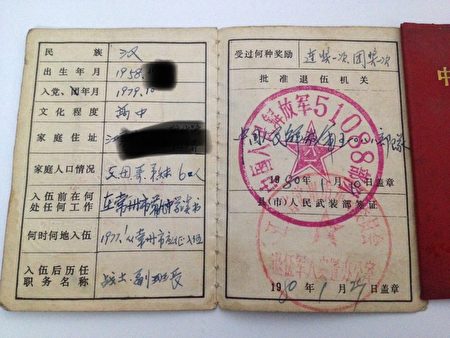 民族 汉
出生年月 1958.
入党、团年月 1979.10
文化程度 高中
家庭住址 江
家庭人口情况 6口人
入伍前在何处任何工作 在常州市 中学读书
何时何地入伍 1977.1 从常州市应征入伍
入伍后历任职务名称 战士、副班长
受过何种奖励 连奖一次、团奖 次
批准退伍机关
中国人民解放军51088部队
1980年1月10日盖章
县(市)人民武装部签证
退伍军人安置办公室
1980年1月29日盖章
中